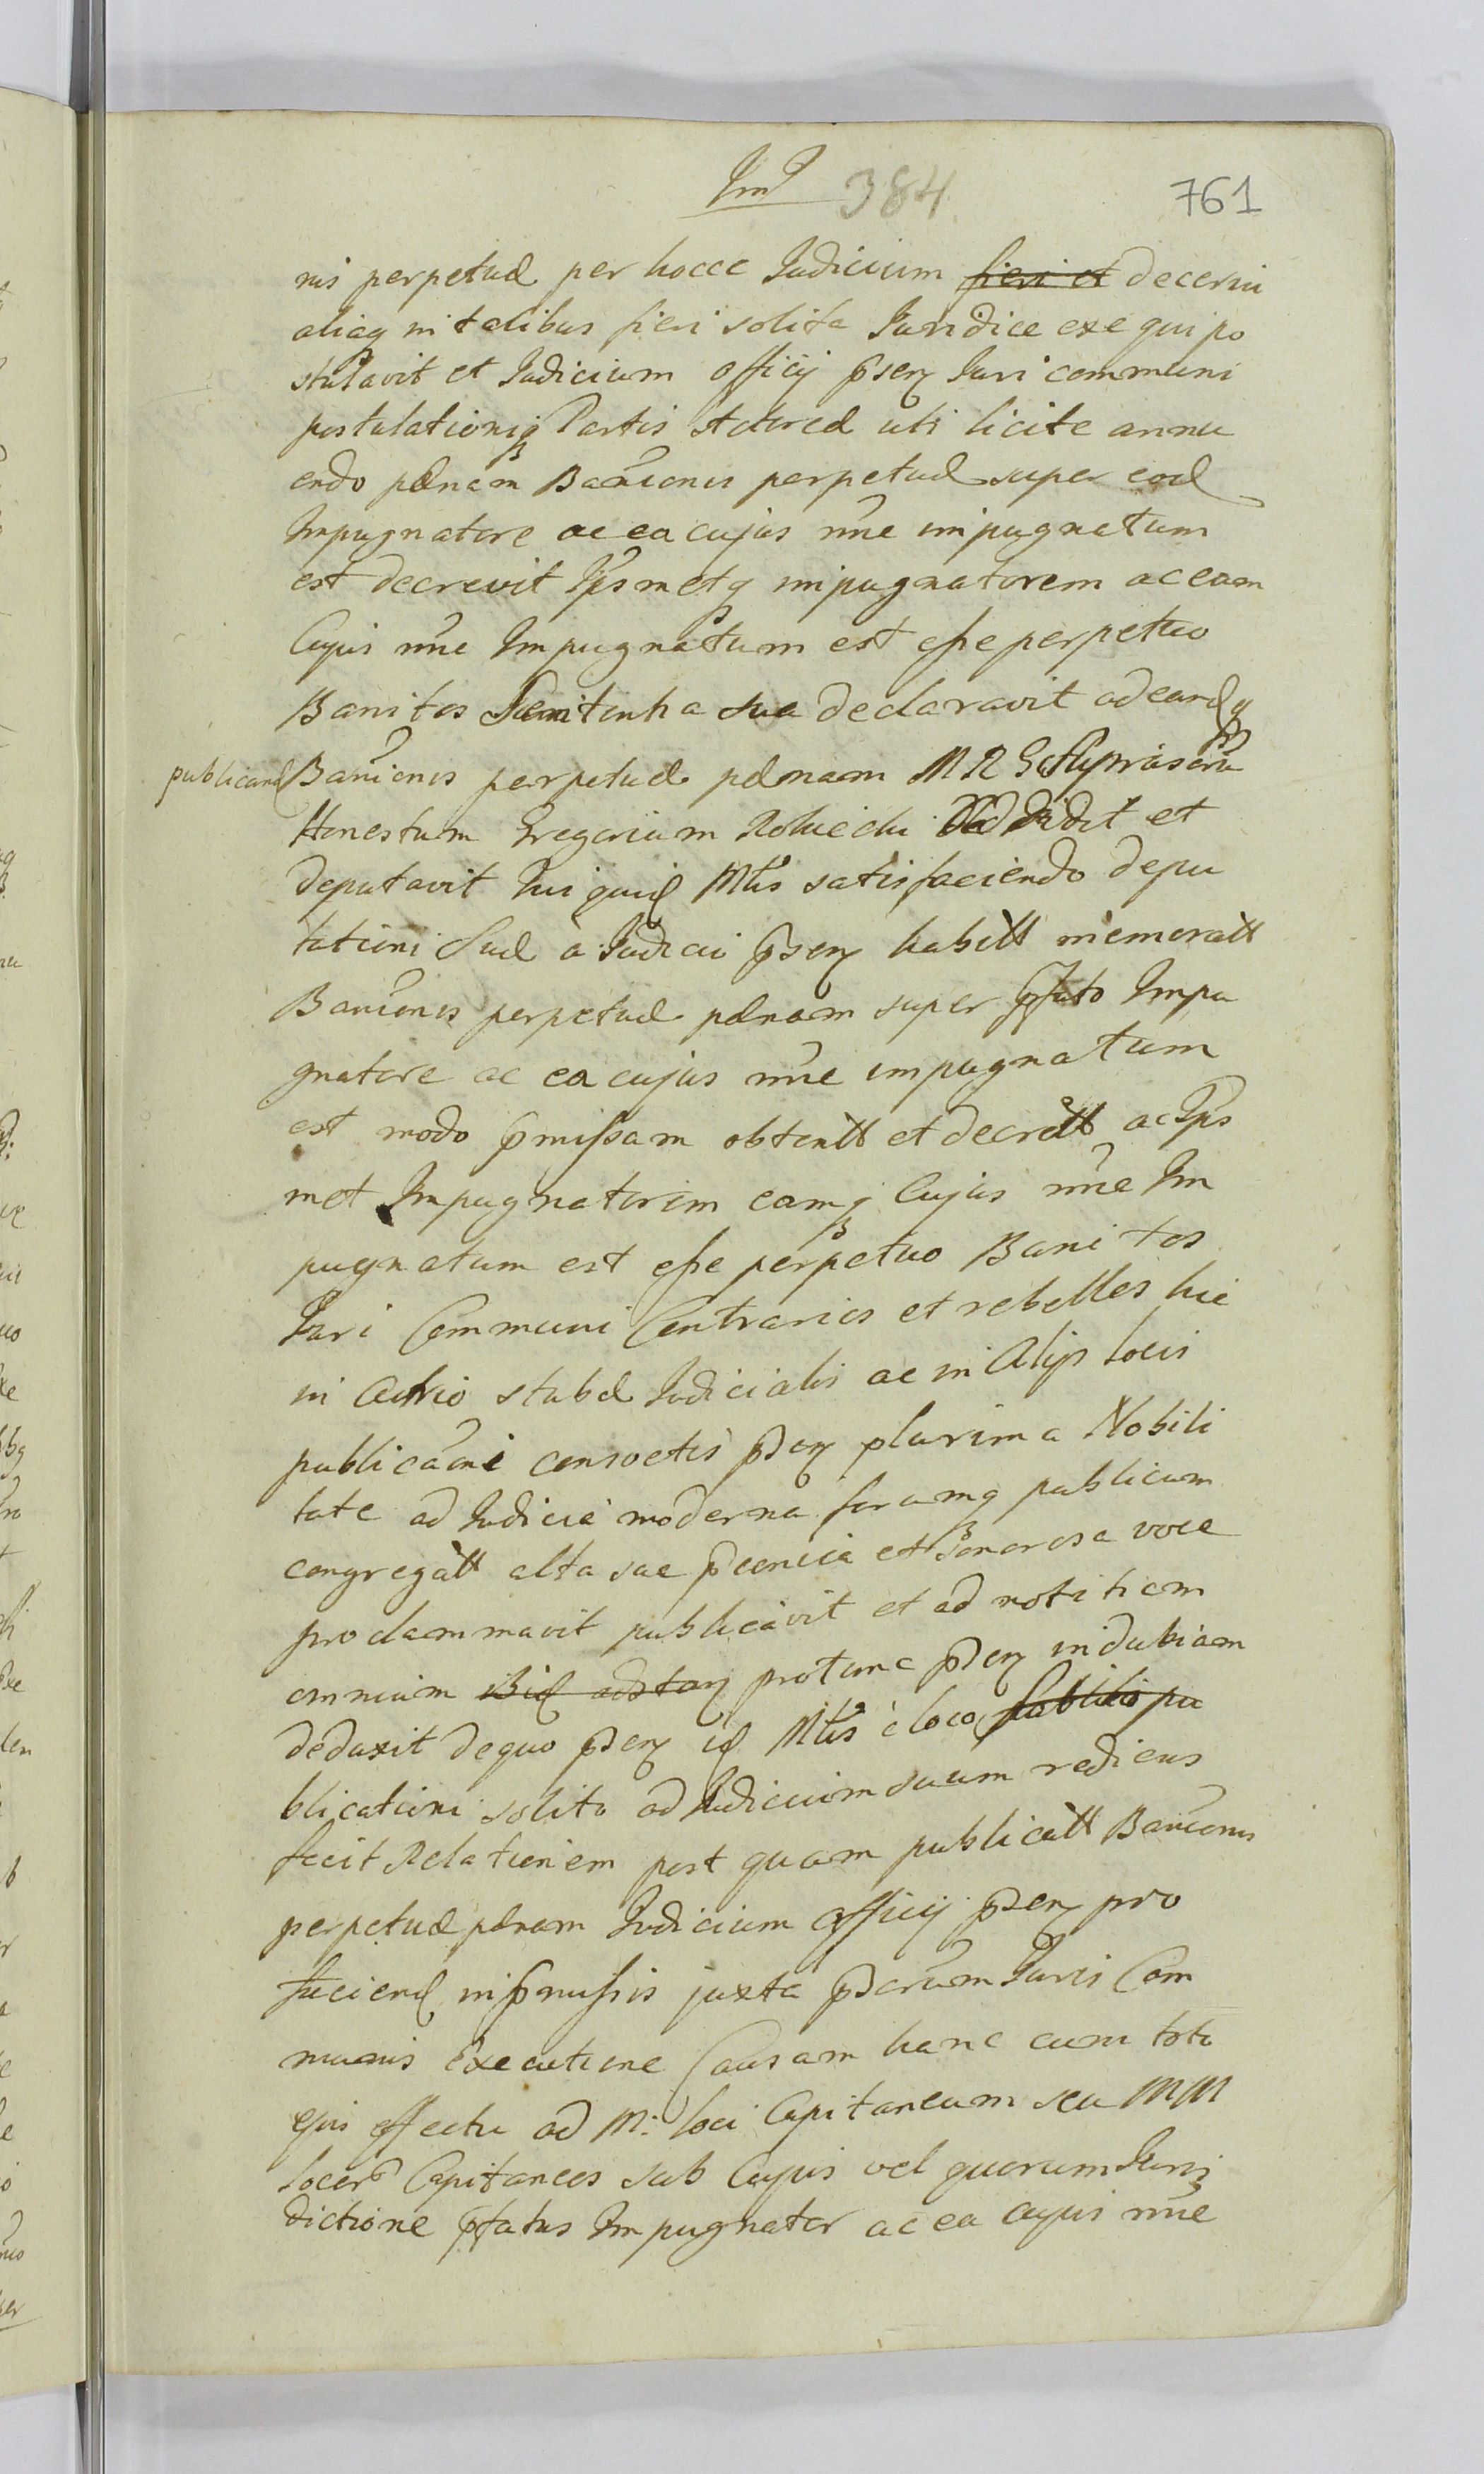 384
761
nis perpetuæ per hocce Judicium fieri et decerni
aliaq in talibus fieri solita Juridice exequi po
stulavit et Judicium officij p̃sen Juri communi
postulationiq Partis Actoreæ uti licite annu
endo pænam Bañionis perpetuæ super eod
Impugnatore ac ea cujus nñe impugnatum
est decrevit Ipsmetq impugnatorem ac eam
Cujus nñe Impugnatum est esse perpetuo
Banitos Sententia sua declaravit ad eandq
publicand Bañionis perpetuæ pænam M R G
Honestum Gregorium et
deputavit Qui quid Mtris satisfaciendo depu
tationi suæ a Judicii p̃sen habitt memoratt
Bañionis perpetuæ pænam super p̃fato Impu
gnatore ac ea cujus nñe impugnatum
est modo p̃missam obtentt et decrett ac Ips
met Impugnatorem eamq Cujus nñe Im
pugnatum est esse perpetuo Banitos
Juri Communi Contrarios et rebelles hic
in Atrio stubæ Judicialis ac in Alijs locis
publicãoni consvetis p̃sen plurima Nobili
tate ad Judicia moderna forumq publicum
congregatt alta sae p̃conica et sonorosa voce
proclammavit publicavit et ad notitiam
omnium protunc p̃sen indubiam
deduxit de quo p̃sen id Mtris e loco pu
blicationi solito ad Judicium suum rediens
fecit Relationem post quam publicatt Bañionis
perpetuæ pænam Judicium Officij p̃sen pro
faciend in p̃missis juxta Juris Com
munis executione Causam hanc cum toto
ejus effectu ad M: loci Capitaneum seu MM
locor Capitaneos sub Cujus vel quorum Juris
dictione p̃fatus Impugnator ac ea cujus nñe